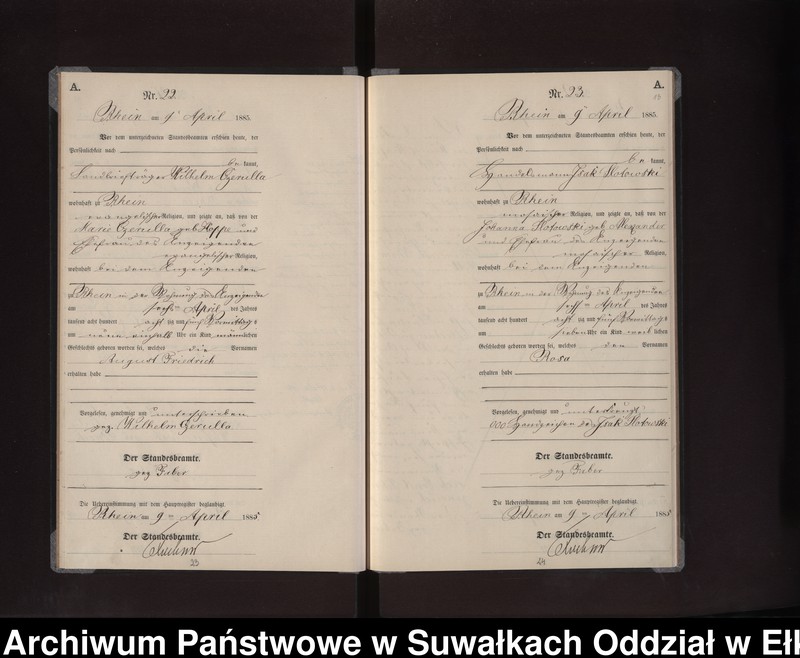 A.
Nr. 22.
Rhein am 9ten April 1885.
Vor dem unterzeichneten Standesbeamten erschien heute, der
Persönlichkeit nach
be kannt,
Landbriefträger Wilhelm
wohnhaft zu Rhein
evangelischer Religion, und zeigte an, daß von der
Marie geb. und
Ehefrau des Anzeigenden
evangelischer Religion,
wohnhaft bei dem Anzeigenden
zu Rhein in der Wohnung des Anzeigenden
am sechsten April des Jahres
tausend acht hundert acht zig und fünf Vormittags
um neun einhalb Uhr ein Kind männlichen
Geschlechts geboren worden sei, welches die Vornamen
August Friedrich
erhalten habe
Vorgelesen, genehmigt und unterschrieben
gez. Wilhelm
Der Standesbeamte.
gez.
Die Uebereinstimmung mit dem Hauptregister beglaubigt.
Rhein am 9ten April 1885
Der Standesbeamte.
23
A.
Nr. 23.
Rhein am 9ten April 1885.
Vor dem unterzeichneten Standesbeamten erschien heute, der
Persönlichkeit nach
be kannt,
Handelsmann Isak
wohnhaft zu Rhein
mosaischer Religion, und zeigte an, daß von der
Johanna geb. Alexander
und Ehefrau des Anzeigenden
mosaischer Religion,
wohnhaft bei dem Anzeigenden
zu Rhein in der Wohnung des Anzeigenden
am sechsten April des Jahres
tausend acht hundert acht zig und fünf Vormittags
um sieben Uhr ein Kind weib lichen
Geschlechts geboren worden sei, welches den Vornamen
Rosa
erhalten habe
Vorgelesen, genehmigt und unterkreuzt
000 Handzeichen des Isak
Der Standesbeamte.
gez.
Die Uebereinstimmung mit dem Hauptregister beglaubigt.
Rhein am 9ten April 1885
Der Standesbeamte.
24
Archiwum Państwowe w Suwałkach Oddział w Ełk